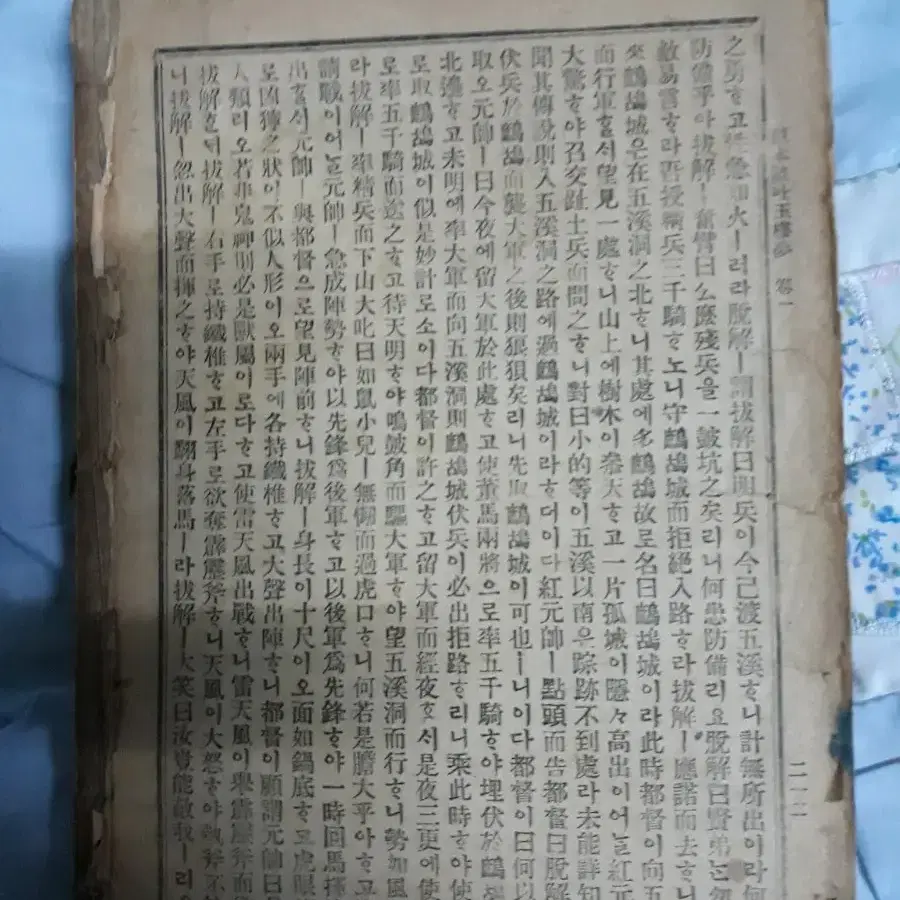 之勇ᄒᆞ고性急如火ㅣ러라脫解ㅣ謂拔解曰明兵이今已渡五溪ᄒᆞ니計無所出이라何
防備乎아拔解ㅣ奮臂曰么麽殘兵을一鼓坑之矣리니何患防備리오脫解曰賢弟는勿
敵易言ᄒᆞ라吾授精兵三千騎ᄒᆞ노니守鷓鴣城而拒絕入路ᄒᆞ라拔解ㅣ應諾而去ᄒᆞ니
來鷓鴣城은在五溪洞之北ᄒᆞ니其處에多鷓鴣故로名曰鷓鴣城이라此時都督이向五
而行軍ᄒᆞᆯᄉᆡ望見一處ᄒᆞ니山上에樹木이參天ᄒᆞ고一片孤城이隱々高出이어ᄂᆞᆯ紅元
大驚ᄒᆞ야召交趾土兵而問之ᄒᆞ니對曰小的等이五溪以南은踪跡不到處라未能詳知
聞其傳說則入五溪洞之路에過鷓鴣城이라ᄒᆞ더이다紅元帥ㅣ點頭而告都督曰脫解
伏兵於鷓鴣而襲大軍之後則狼狽矣리니先取鷓鴣城이可也ㅣ니이다都督이曰何以
取오元帥ㅣ曰今夜에留大軍於此處ᄒᆞ고使董馬兩將으로率五千騎ᄒᆞ야埋伏於鷓鴣
北邊ᄒᆞ고未明에率大軍而向五溪洞則鷓鴣城伏兵이必出拒路ᄒᆞ리니乘此時ᄒᆞ야使
로取鷓鴣城이似是妙計로소이다都督이許之ᄒᆞ고留大軍而經夜ᄒᆞᆯᄉᆡ是夜三更에使
로率五千騎而送之ᄒᆞ고待天明ᄒᆞ야鳴鼓角而驅大軍ᄒᆞ야望五溪洞而行ᄒᆞ니勢如風
라拔解ㅣ率精兵而下山大叱曰如鼠小兒ㅣ無懶而過虎口ᄒᆞ니何若是膽大乎아ᄒᆞ고
請戰이어ᄂᆞᆯ元帥ㅣ急成陣勢ᄒᆞ야以先鋒爲後軍ᄒᆞ고以後軍爲先鋒ᄒᆞ야一時回馬
出ᄒᆞᆯᄉᆡ元帥ㅣ與都督으로望見陣前ᄒᆞ니拔解ㅣ身長이十尺이오面如鍋底ᄒᆞ고虎眼
로凶獰之狀이不似人形이오兩手에各持鐵椎ᄒᆞ고大聲出陣ᄒᆞ니都督이顧謂元帥曰
人類리오若非鬼神則必是獸屬이로다ᄒᆞ고使雷天風出戰ᄒᆞ니雷天風이擧霹靂斧而
拔解ᄒᆞᆫᄃᆡ拔解ㅣ右手로持鐵椎ᄒᆞ고左手로欲奪霹靂斧ᄒᆞ니天風이大怒ᄒᆞ야執斧不
니拔解ㅣ忽出大聲而揮之ᄒᆞ야天風이翻身落馬ㅣ라拔解ㅣ大笑曰汝豈能敵我ㅣ리
吐玉樓夢 卷一